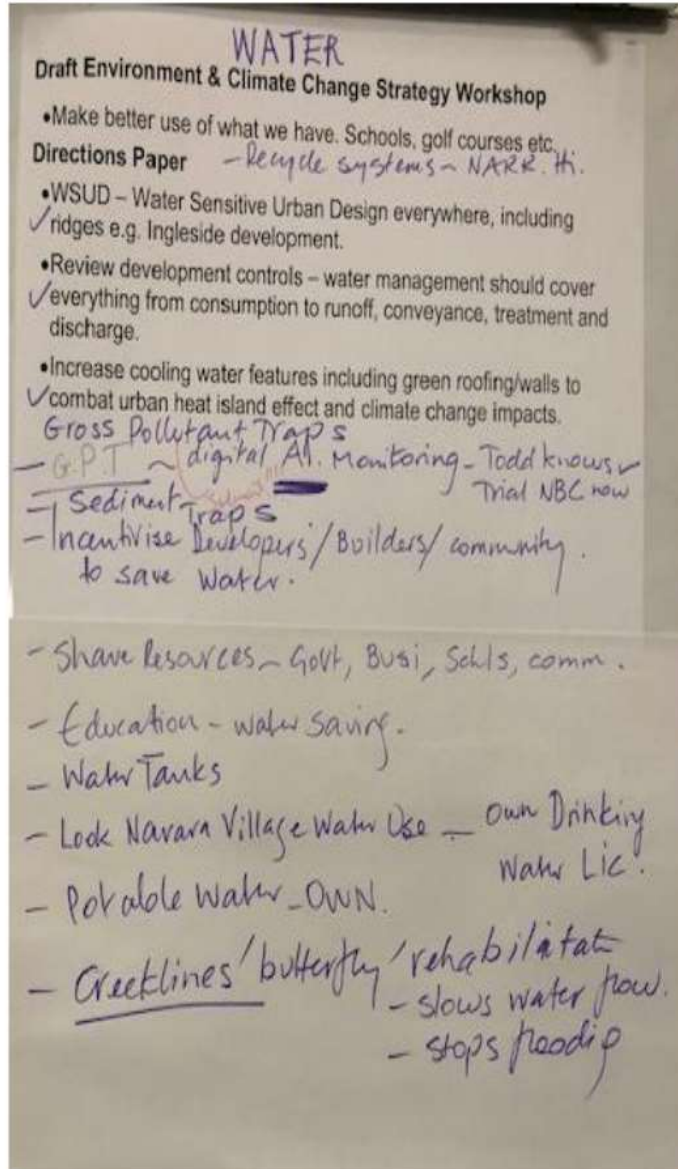 WATER
Draft Environment & Climate Change Strategy Workshop
•Make better use of what we have. Schools, golf courses etc.
Directions Paper - Recycle systems ~ NARR. Hi.
•WSUD – Water Sensitive Urban Design everywhere, including
✓ridges e.g. Ingleside development.
•Review development controls – water management should cover
✓everything from consumption to runoff, conveyance, treatment and
discharge.
•Increase cooling water features including green roofing/walls to
✓combat urban heat island effect and climate change impacts.
Gross Pollutant Traps
- G.P.T ~ digital A.I. Monitoring - Todd knows
Trial NBC now
- Sediment Traps
- Incentivise Developers/Builders/community.
to save water.
- Share Resources ~ Govt, Busi, Schls, comm.
- Education - water saving.
- Water Tanks
- Look Narara Village Water Use - Own Drinking
Water Lic.
- Potable Water - OWN.
- Creeklines/butterfly/rehabilitat
- slows water flow.
- stops floodig